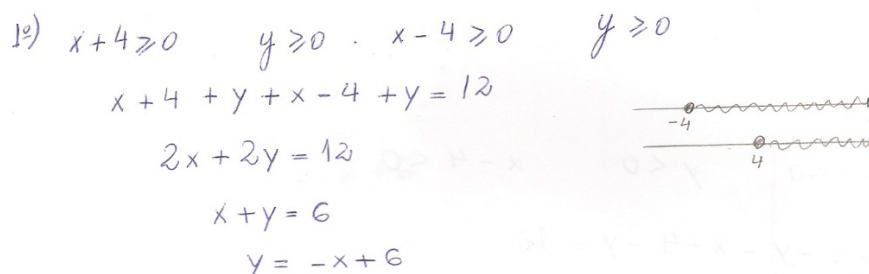 1º) x + 4 ⩾ 0 y ⩾ 0 . x - 4 ⩾ 0 y ⩾ 0
x + 4 + y + x - 4 + y = 12
-4
2x + 2y = 12
4
x + y = 6
y = -x + 6